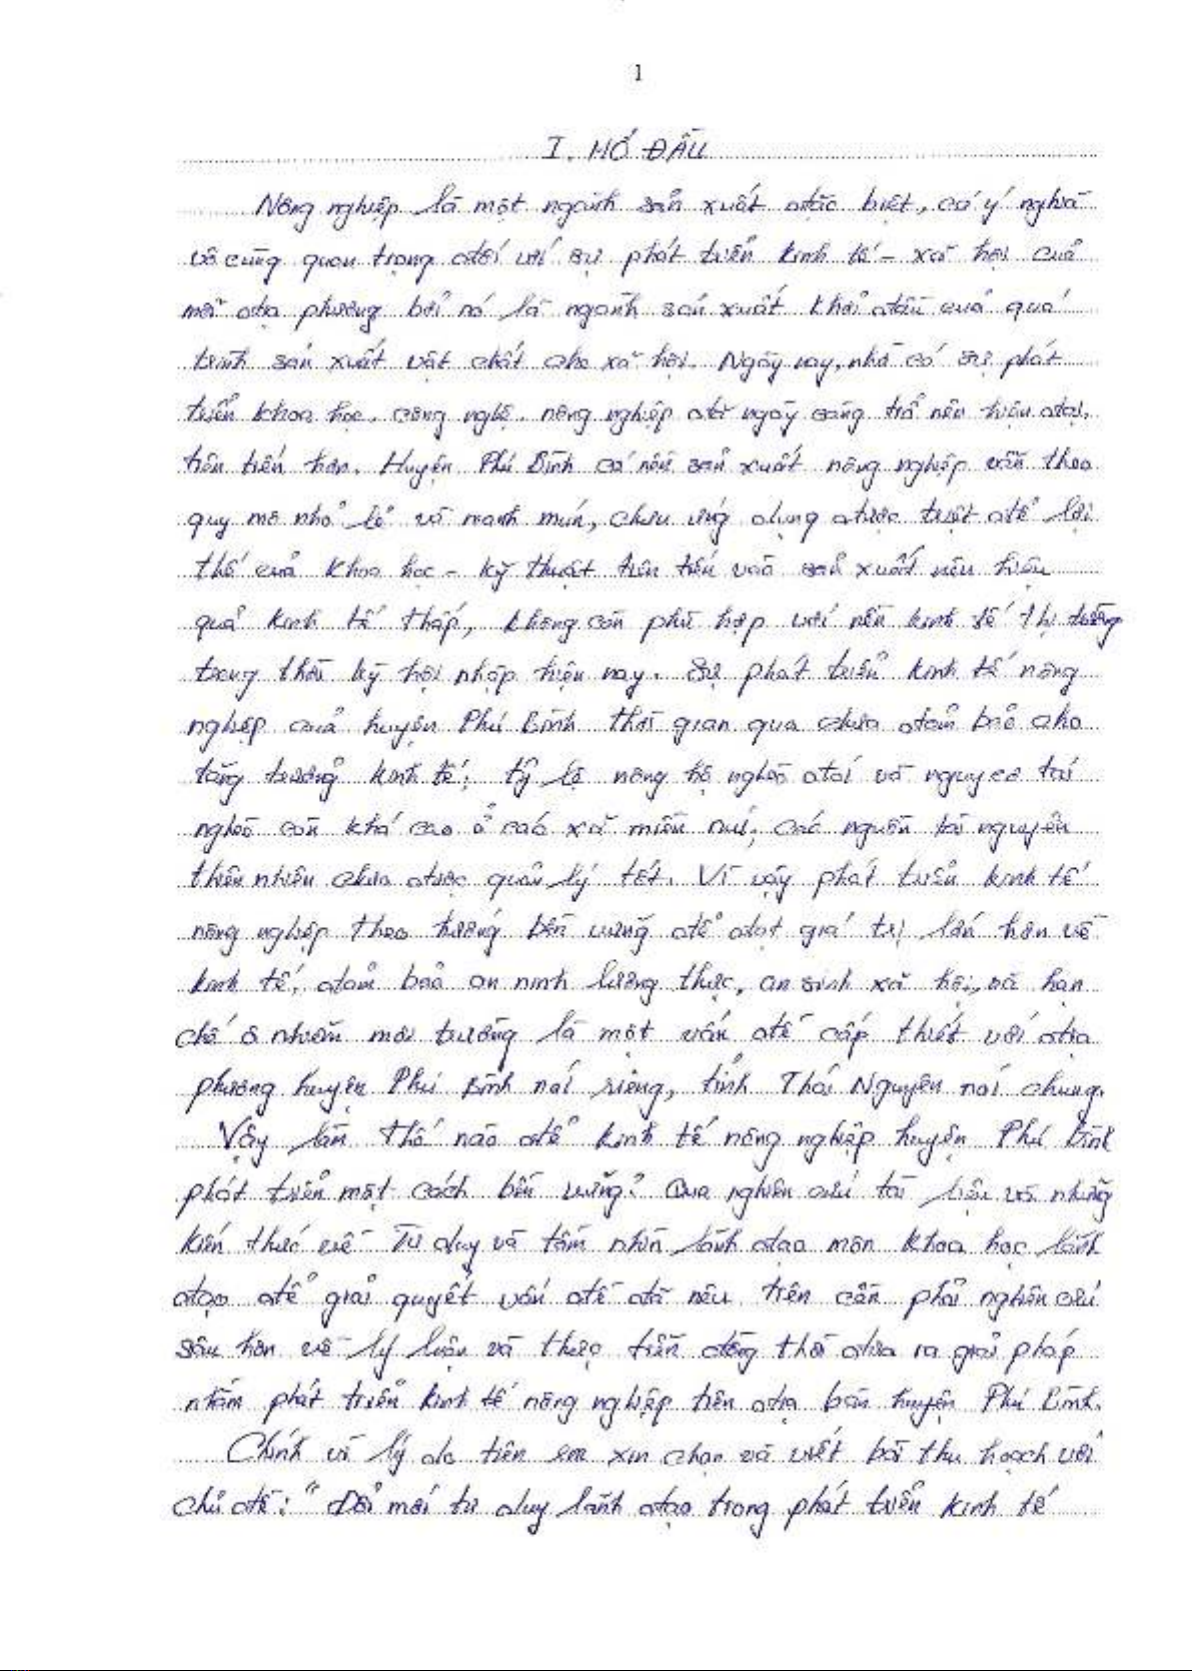 1
I. MỞ ĐẦU
Nông nghiệp là một ngành sản xuất đặc biệt, có ý nghĩa
vô cùng quan trọng đối với sự phát triển kinh tế - xã hội của
mỗi địa phương bởi nó là ngành sản xuất khởi đầu của quá
trình sản xuất vật chất cho xã hội. Ngày nay, nhờ có sự phát
triển khoa học, công nghệ, nông nghiệp đã ngày càng trở nên hiện đại,
tiên tiến hơn. Huyện Phú Bình có nền sản xuất nông nghiệp vẫn theo
quy mô nhỏ lẻ và manh mún, chưa ứng dụng được triệt để lợi
thế của khoa học - kỹ thuật tiên tiến vào sản xuất nên hiệu
quả kinh tế thấp, không còn phù hợp với nền kinh tế thị trường
trong thời kỳ hội nhập hiện nay. Sự phát triển kinh tế nông
nghiệp của huyện Phú Bình thời gian qua chưa đảm bảo cho
tăng trưởng kinh tế; tỷ lệ nông hộ nghèo đói và nguy cơ tái
nghèo còn khá cao ở các xã miền núi; các nguồn tài nguyên
thiên nhiên chưa được quản lý tốt. Vì vậy phát triển kinh tế
nông nghiệp theo hướng bền vững để đạt giá trị lớn hơn về
kinh tế, đảm bảo an ninh lương thực, an sinh xã hội, và hạn
chế ô nhiễm môi trường là một vấn đề cấp thiết với địa
phương huyện Phú Bình nói riêng, tỉnh Thái Nguyên nói chung.
Vậy làm thế nào để kinh tế nông nghiệp huyện Phú Bình
phát triển một cách bền vững? Qua nghiên cứu tài liệu và những
kiến thức về Tư duy và tầm nhìn lãnh đạo môn khoa học lãnh
đạo để giải quyết vấn đề đã nêu trên cần phải nghiên cứu
sâu hơn về lý luận và thực tiễn đồng thời đưa ra giải pháp
nhằm phát triển kinh tế nông nghiệp trên địa bàn huyện Phú Bình.
Chính vì lý do trên em xin chọn và viết bài thu hoạch với
chủ đề: "Đổi mới tư duy lãnh đạo trong phát triển kinh tế